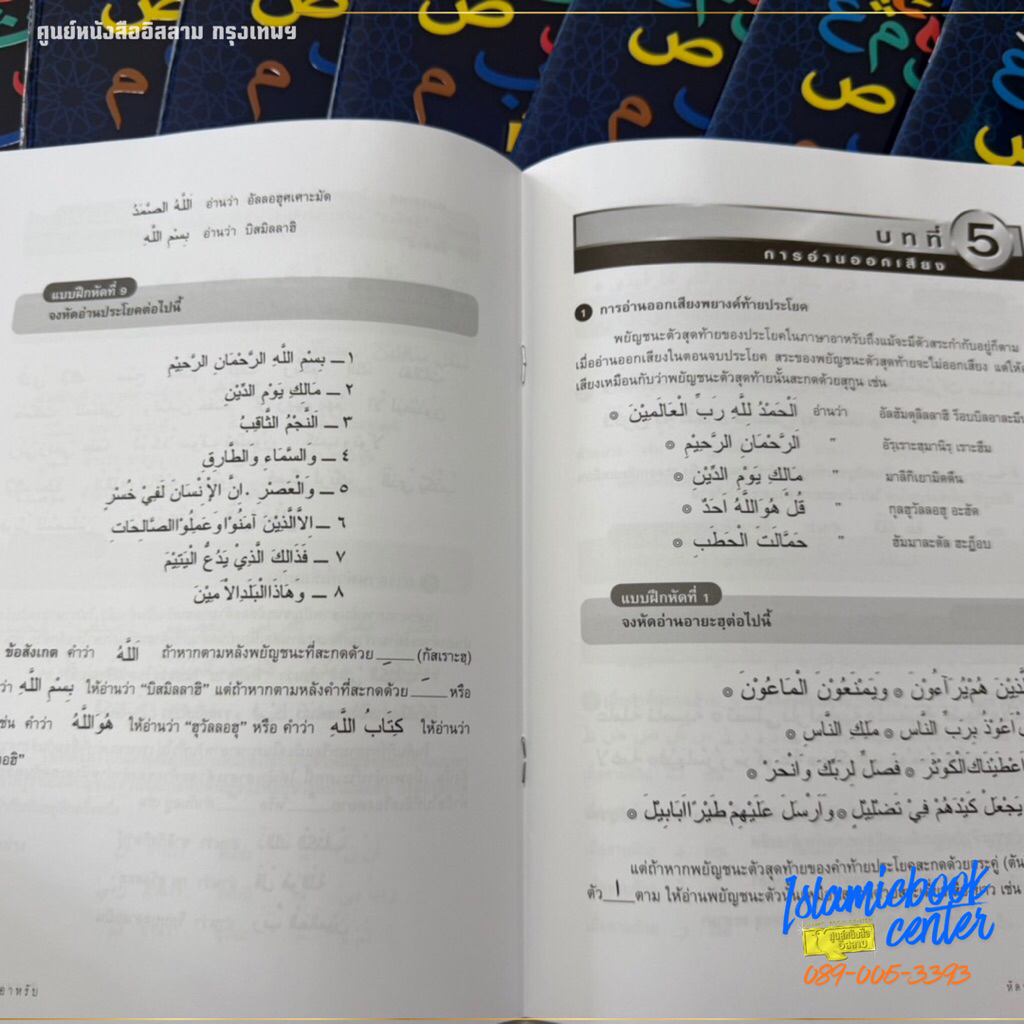 ศูนย์หนังสืออิสลาม กรุงเทพฯ
اَللهُ الصَّمَدُ อ่านว่า อัลลอฮุศเศาะมัด
بِسْمِ اللَّهِ อ่านว่า บิสมิลลาฮิ
แบบฝึกหัดที่ 9
จงหัดอ่านประโยคต่อไปนี้
١ ــ بِسْمِ اللَّهِ الرَّحْمَانِ الرَّحِيْمِ
٢ ــ مَالِكِ يَوْمِ الدِّيْنِ
٣ ــ اَلنَّجْمُ الثَّاقِبُ
٤ ــ وَالسَّمَاءِ وَالطَّارِقِ
٥ ــ وَالْعَصْرِ . اِنَّ الْإِنْسَانَ لَفِيْ خُسْرٍ
٦ ــ اِلاَّالَّذِيْنَ آمَنُوْا وَعَمِلُوْاالصَّالِحَاتِ
٧ ــ فَذَالِكَ الَّذِيْ يَدُعُّ الْيَتِيْمَ
٨ ــ وَهَاذَاالْبَلَدِالْاَمِيْنَ
ข้อสังเกต คำว่า اَللَّهُ ถ้าหากตามหลังพยัญชนะที่สะกดด้วย ــِـ (กัสเราะฮฺ)
ว่า بِسْمِ اللَّهِ ให้อ่านว่า “บิสมิลลาฮิ” แต่ถ้าหากตามหลังคำที่สะกดด้วย ــَـ หรือ
ช่น คำว่า هُوَاللَّهُ ให้อ่านว่า “ฮุวัลลอฮุ” หรือ คำว่า كِتَابُ اللَّهِ ให้อ่านว่า
อฮิ”
อาหรับ
บทที่ 5
การอ่านออกเสียง
1 การอ่านออกเสียงพยางค์ท้ายประโยค
พยัญชนะตัวสุดท้ายของประโยคในภาษาอาหรับถึงแม้จะมีตัวสระกำกับอยู่ก็ตาม
เมื่ออ่านออกเสียงในตอนจบประโยค สระของพยัญชนะตัวสุดท้ายจะไม่ออกเสียง แต่ให้
เสียงเหมือนกับว่าพยัญชนะตัวสุดท้ายนั้นสะกดด้วยสุกูน เช่น
اَلْحَمْدُ لِلَّهِ رَبِّ الْعَالَمِيْنَ ۞ อ่านว่า อัลฮัมดุลิลลาฮิ ร็อบบิลอาละมีน
اَلرَّحْمَانِ الرَّحِيْمِ ۞ ” อัรฺเราะฮฺมานิรฺ เราะฮีม
مَالِكِ يَوْمِ الدِّيْنِ ۞ ” มาลิกิเยามิดดีน
قُلْ هُوَاللَّهُ اَحَدٌ ۞ ” กุลฮุวัลลอฮุ อะฮัด
حَمَّالَتَ الْحَطَبِ ۞ ” ฮัมมาละตัล ฮะฏ็อบ
แบบฝึกหัดที่ 1
จงหัดอ่านอายะฮฺต่อไปนี้
لَّذِيْنَ هُمْ يُرَآءُوْنَ ۞ وَيَمْنَعُوْنَ الْمَاعُوْنَ ۞
اَعُوْذُ بِرَبِّ النَّاسِ ۞ مَلِكِ النَّاسِ ۞
اَعْطَيْنَاكَ الْكَوْثَرَ ۞ فَصَلِّ لِرَبِّكَ وَانْحَرْ ۞
يَجْعَلْ كَيْدَهُمْ فِيْ تَضْلِيْلٍ ۞ وَاَرْسَلَ عَلَيْهِمْ طَيْرًا اَبَابِيْلَ ۞
แต่ถ้าหากพยัญชนะตัวสุดท้ายของคำท้ายประโยคสะกดด้วยสระคู่
ตัว ا ตาม ให้อ่านพยัญชนะตัว เช่น
หัด
Islamicbook center
ศูนย์หนังสืออิสลาม
089-005-3393